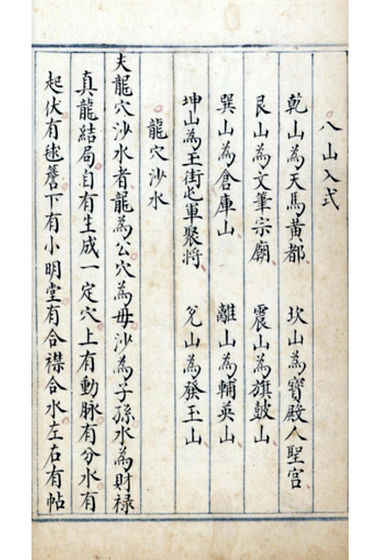 八山入式
乾山為天馬黃都 坎山為寶殿人聖宮
艮山為文筆宗廟 震山為旗皷山
巽山為倉庫山 離山為輔英山
坤山為玉街屯軍聚将 兌山為發玉山
龍穴沙水
夫龍穴沙水者龍為公穴為毋沙為子孫水為財禄
真龍結局自有生成一定穴上有動脉有分水有
起伏有毬簷下有小明堂有合襟合水左右有帖